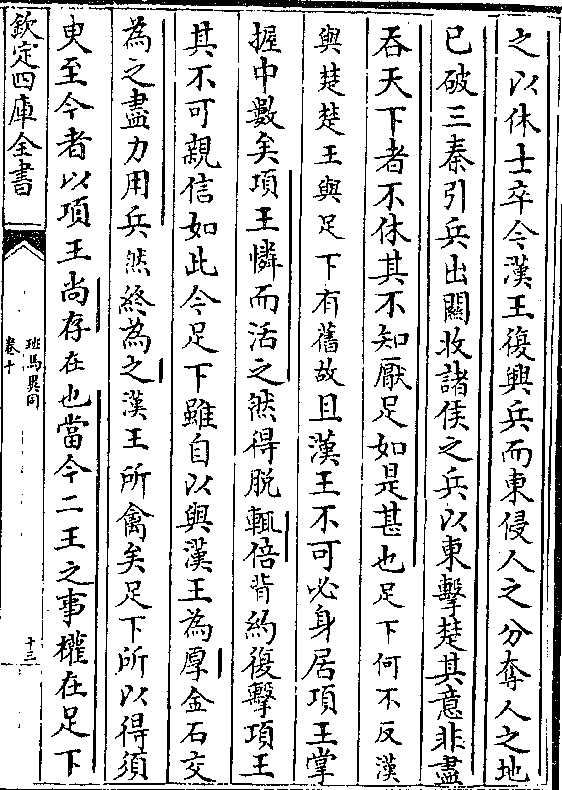 之以休士卒今漢王復興兵而東侵人之分奪人之地
已破三秦引兵出關收諸侯之兵以東擊楚其意非盡
吞天下者不休其不知厭足如是甚也足下何不反漢
與楚楚王與足下有舊故且漢王不可必身居項王掌
握中數矣項王憐而活之然得脫輒倍背約復擊項王
其不可親信如此今足下雖自以與漢王為厚金石交
為之盡力用兵然終為之漢王所禽矣足下所以得須
臾至今者以項王尚存在也當今二王之事權在足下
欽定四庫全書
班馬異同
卷十
十三